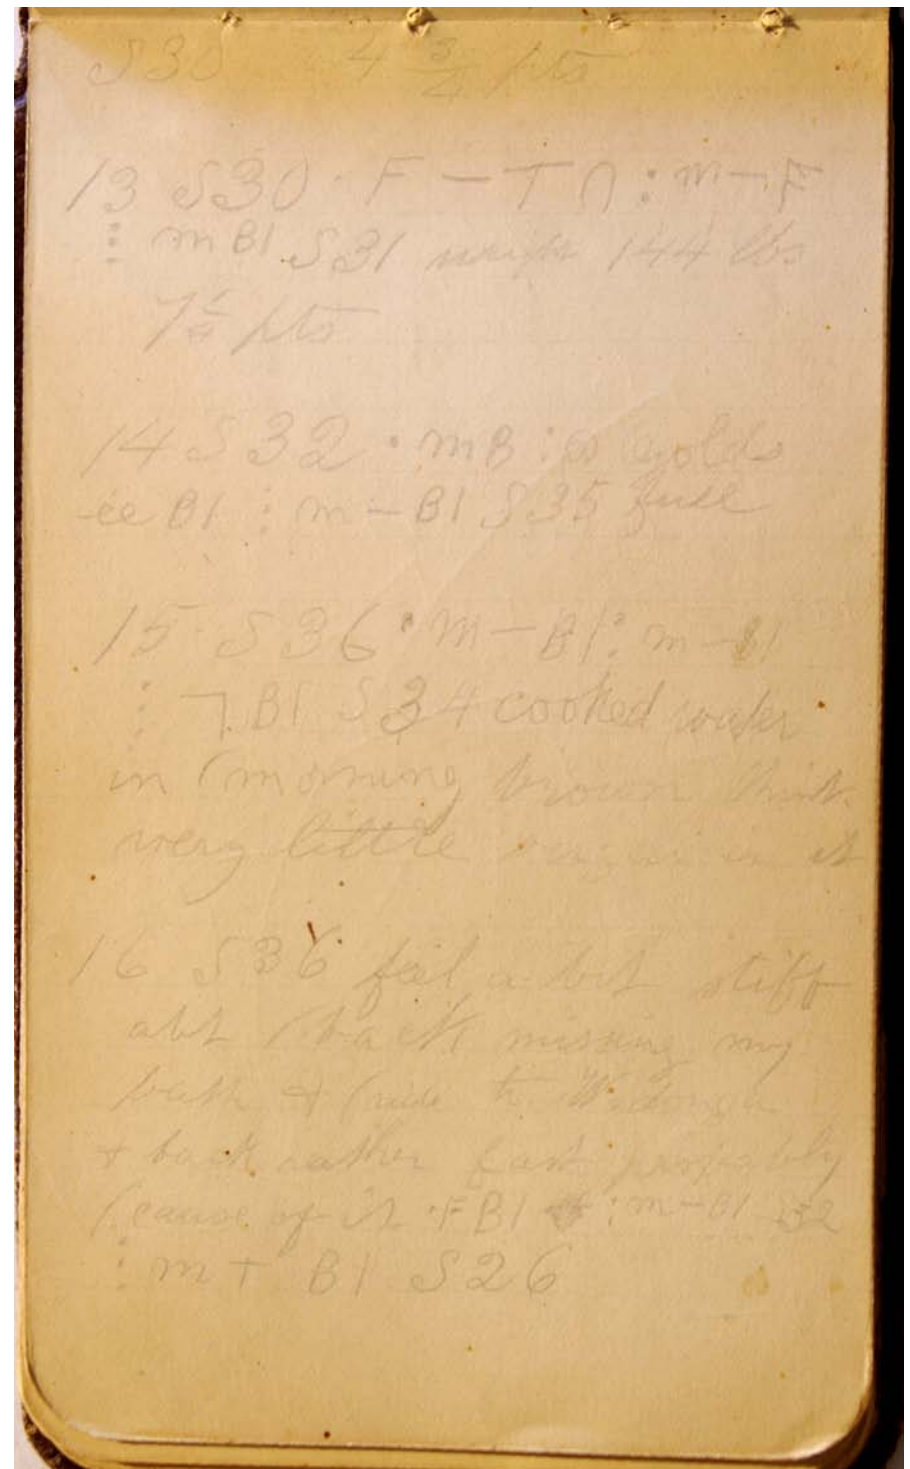 S30 4 3/4 pts
13 S30 · F - T ∩ : m - F
: m B1 S31 weigh 144 lbs
7 1/2 pts
14 S32 · m B :
B1 : m - B1 S35
15 S36 : m - B1 : m - B1
: ㄱ B1 S34 cooked water
in ( morning brown
very little in it
16 S36 feel a bit stiff
abt ( back missing my
bath & ( ride to
& back rather fast probably
( cause of it · F B1 : m - B1 S32
: m + B1 S26